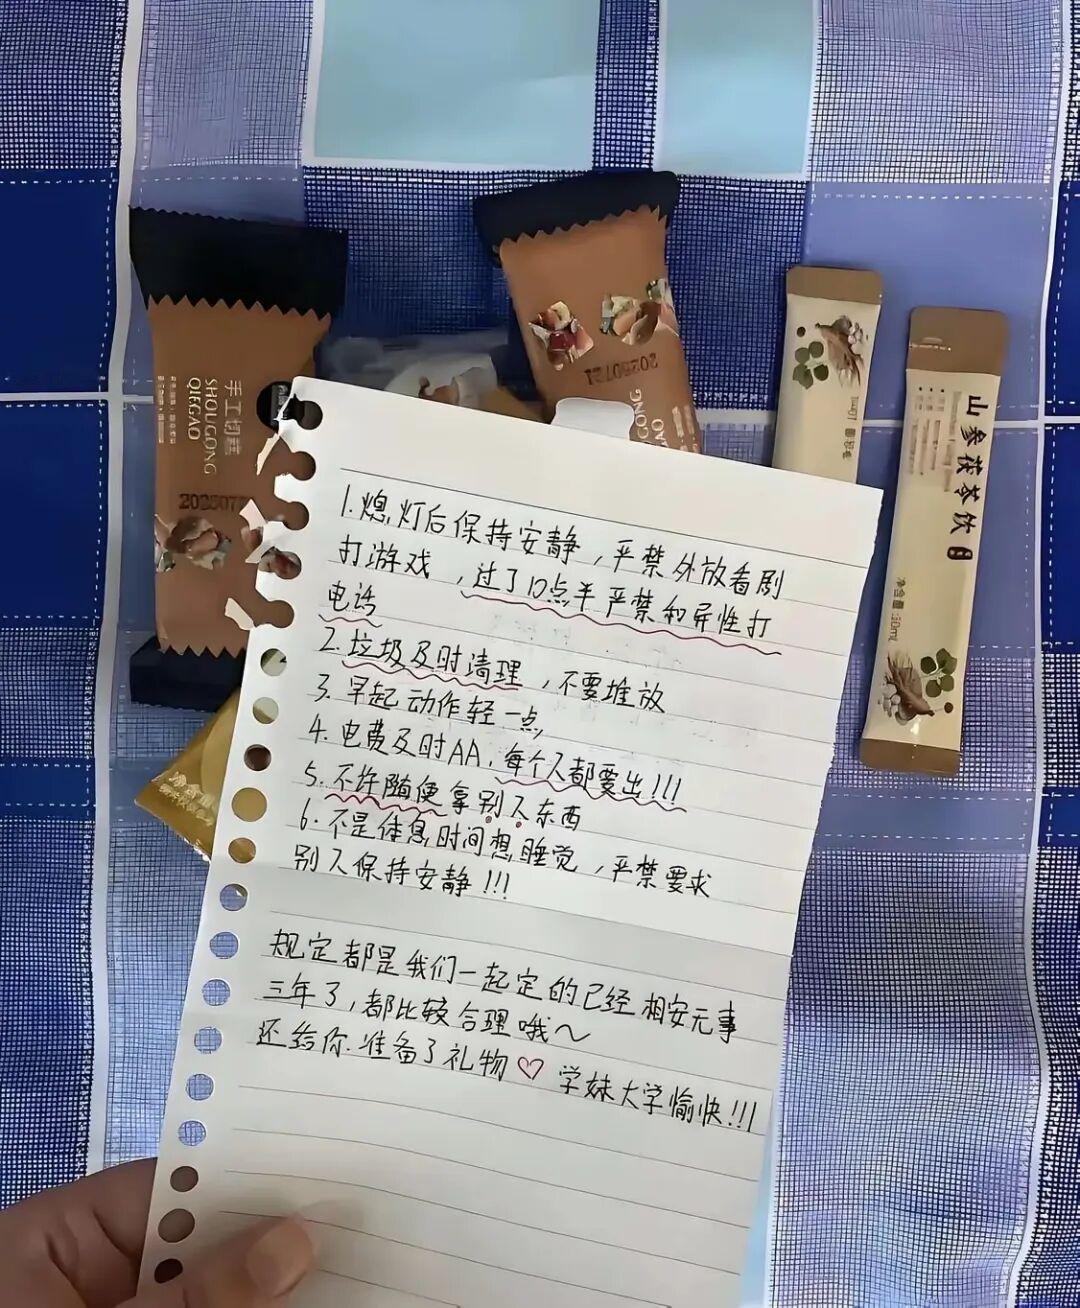 手工切糕
SHOUGONG
QIEGAO
202507
20250721
GONG
GAO
山参茯苓饮
净含量:30ml
1.熄灯后保持安静,严禁外放看剧
打游戏,过了10点半严禁和异性打
电话
2.垃圾及时清理,不要堆放
3.早起动作轻一点
4.电费及时AA,每个人都要出!!!
5.不许随便拿别人东西
6.不是休息时间想睡觉,严禁要求
别人保持安静!!!
规定都是我们一起定的已经相安无事
三年了,都比较合理哦～
还给你准备了礼物♡ 学妹大学愉快!!!